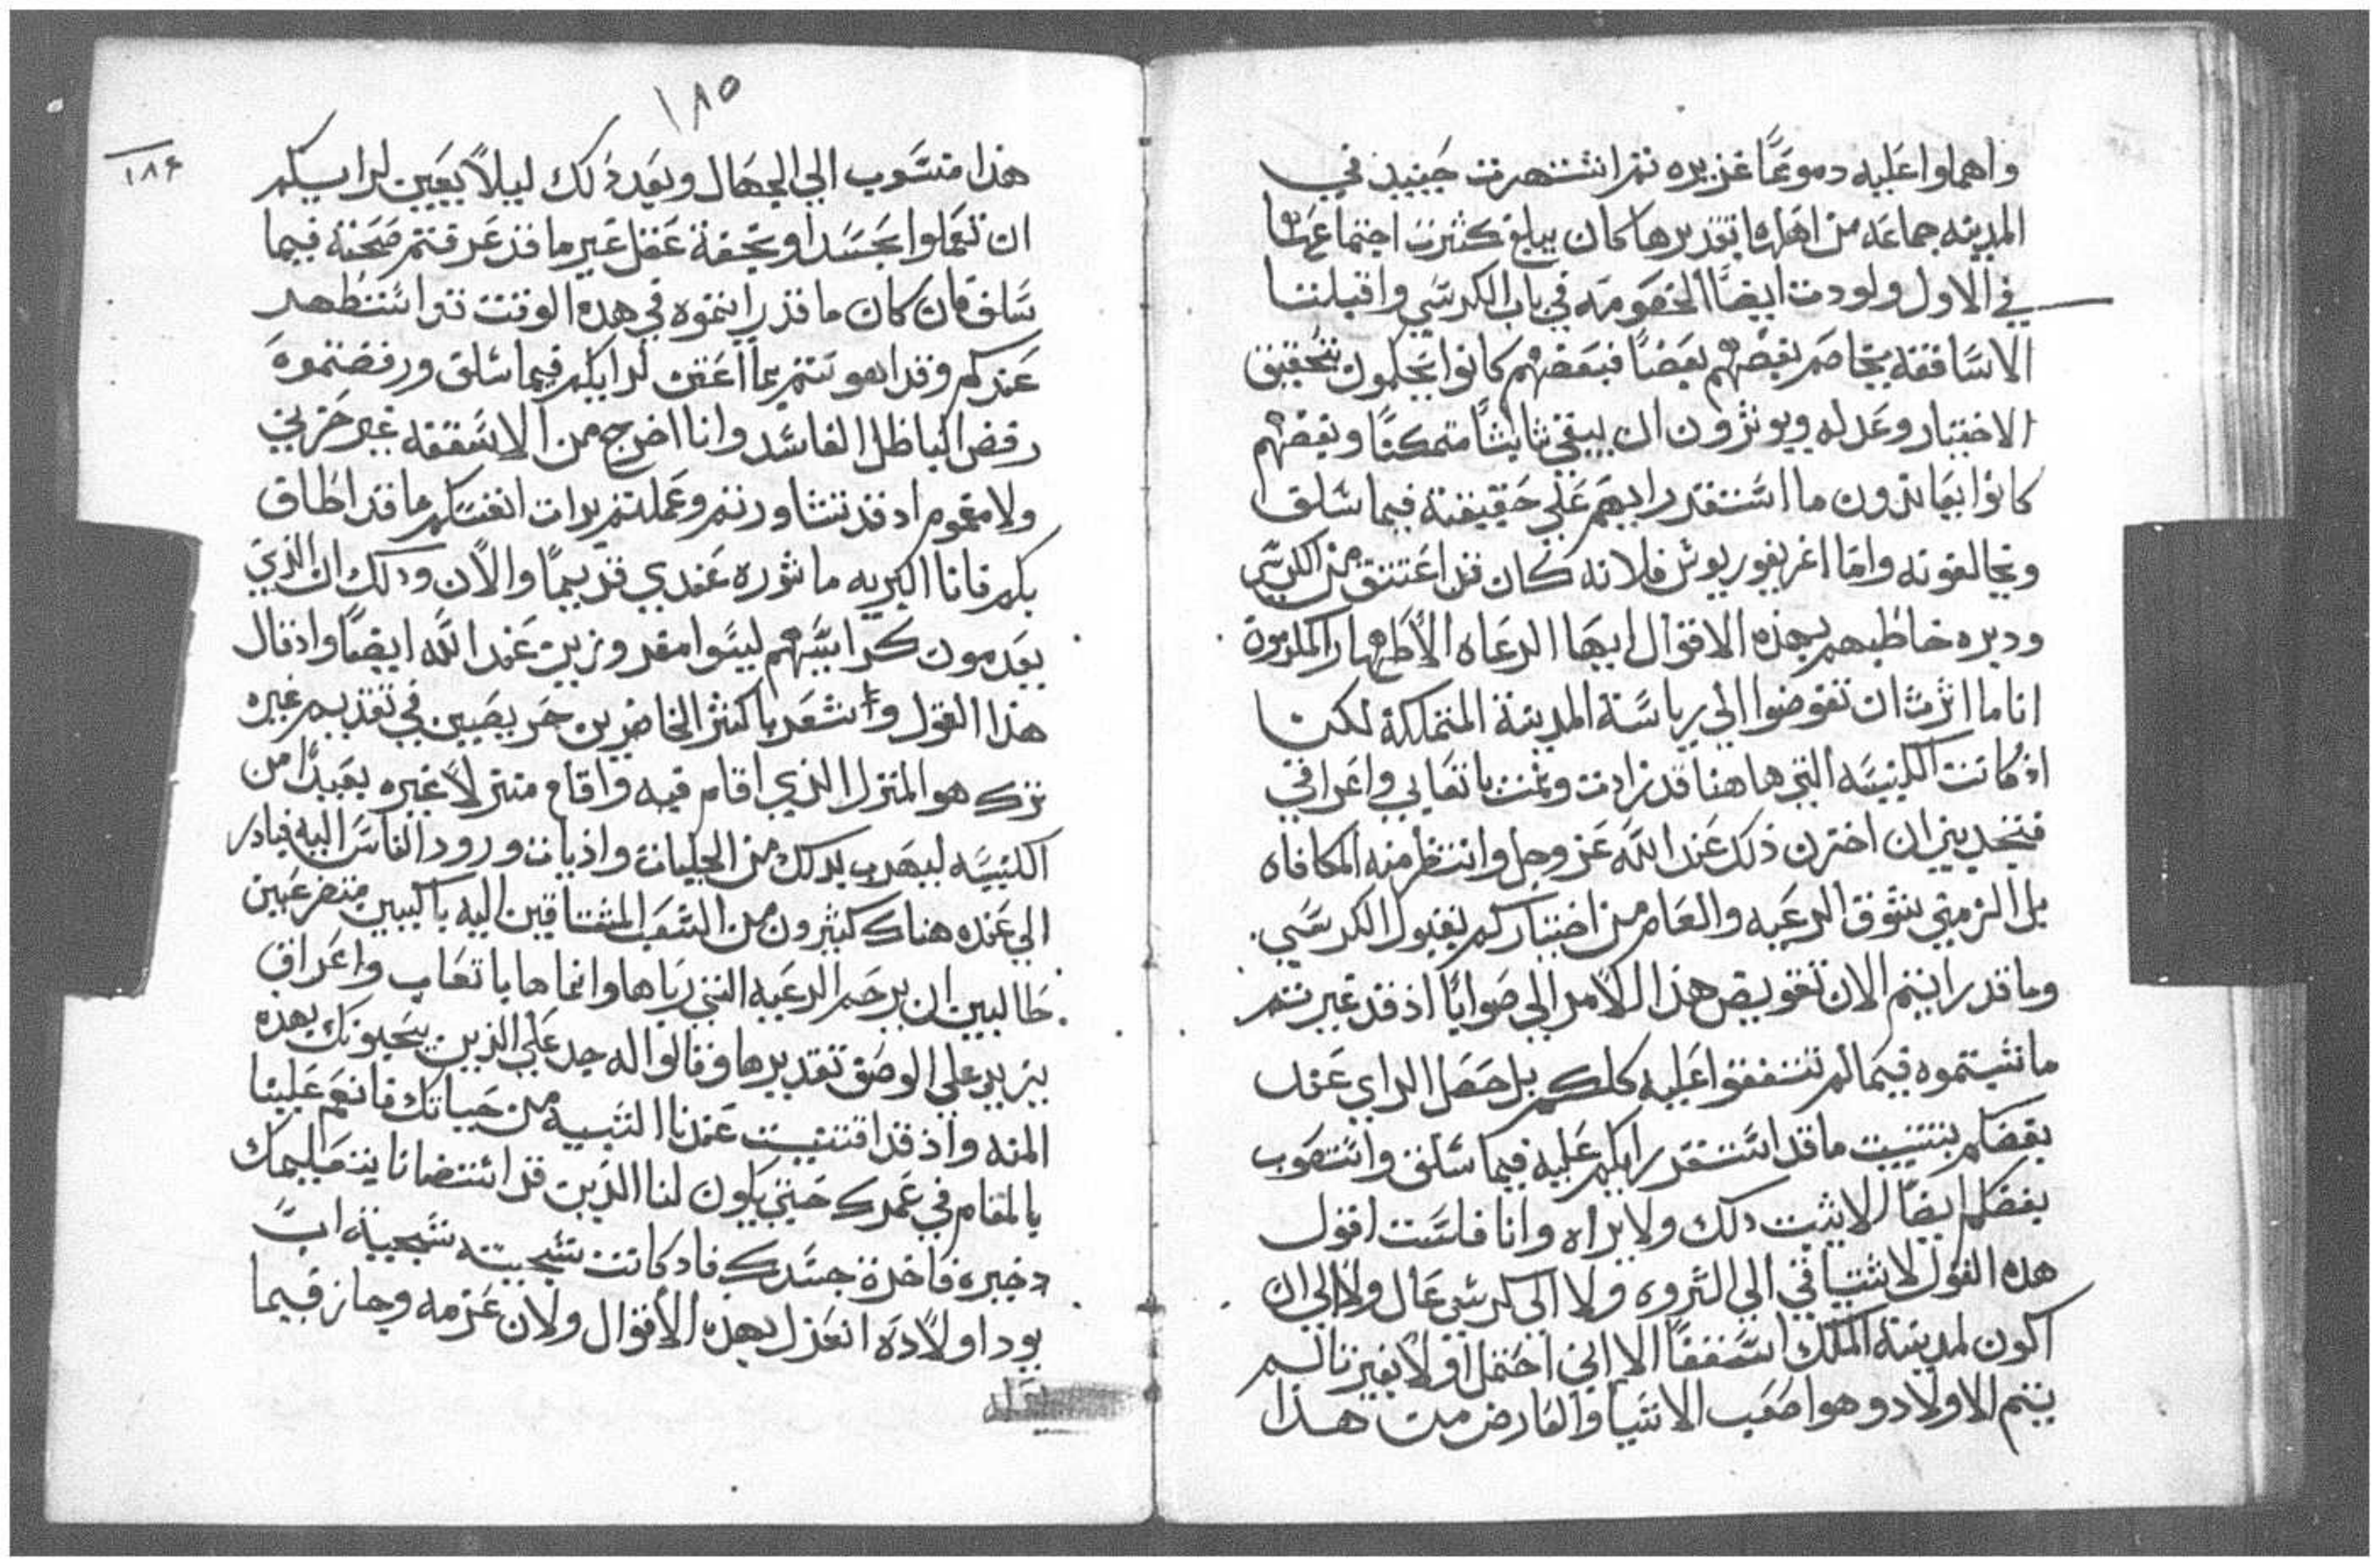 واهملوا عليه دموعًا غزيره ثم اشتهرت حينيذ في
المدينه جماعه من اهلها تقديرها كان يبلغ كثرت اجتماعها
في الاول ولودت ايضًا الخصومه في باب الكرسي واقبلنا
الاساقفه يخاصم بعضهم بعضًا فبعضهم كانوا يحكمون بتحقيق
الاختيار وعدله ويوثرون ان يبقي ثابثًا متمكنًا وبعضهم
كانوا يعاندون ما استقر رايهم علي حقيقته فيما سلف
ويخالفونه واما اغريغوريوس فلانه كان قد اعتتق من الكرسي
وديره خاطبهم بهذه الاقوال ايها الرعاه الاطهار المكرمون
انا ما اثرت ان تفوضوا الي رياسة المدينة المتملكة لكن
اذ كانت الكنيسه التي هاهنا قد زادت ونمت باتعابي واعراقي
فتجديني ان اخترن ذلك عند الله عز وجل وانتظر منه المكافاه
بل الزمني شوق الرعيه والعام من اختياركم بقبول الكرسي.
وما قد رايتم الان تفويض هذا الامر الي صوابًا اذ قد غيرتم
ما شيتموه فيما لم تتفقوا عليه كلكم بل حصل الراي عند
بعضكم بتثبيت ما قد استقر رايكم عليه فيما سلف واستصوب
بعضكم ايضًا الا يثبت ذلك ولا يراه وانا فلست اقول
هذه القول لاشتياقي الي الثروه ولا الي كرسي عال ولا الي ان
اكون لمدينة الملك اسقفًا الا انني احتمل اولًا بغير تالم
يتم الاولاد وهو اصعب الاشيا والعارض من هذا
١٨٥
١٨٤
هذا منسوب الي الجهال وبعد ذلك ليلًا يعين لرايكم
ان تعملوا بحسد او بخفة عقل غير ما قد عرفتم صحته فيما
سلف فان كان ما قد رايتموه في هذه الوقت ترا استظهر
عندكم وقد اهو تنتم بما اعتق لرايكم فيما سلف ورفضتموه
رفض الباطل الفاسد وانا اخرج من الاسقفه غير حزين
ولا مغموم اذ قد تشاورتم وعملتم برات انفسكم ما قد اطاق
بكم فانا البريه ماثوره عندي قديمًا والان وذلك ان الذي
يعدمون كراسيهم ليسوا مقدرين عند الله ايضًا واذ قال
هذا القول واستشعر باكثر الحاضرين حريصين في تقديم غيره
ترك هو المنزل الذي اقام فيه واقام منزلًا غيره بعيدًا من
الكنيسه ليهرب بذلك من الجلبات واذيات ورود الناس اليه فبادر
الي عنده هناك كثيرون من الشعب المشتاقين اليه باكيين متضرعين
طالبين ان يرحم الرعيه التي رباها وانماها باتعاب واعراق
يزيد علي الوصف تقديرها وقالوا له جد علي الذين يحبونك بهذه
المنه واذ قد افنيت عندنا الشيبه من حياتك فانعم علينا
بالمقام في عمرك حتي يكون لنا الذين قد استضانا بتعاليمك
ذخيره فاخرة جسدك فاذ كانت سجيته سجية اب
يود اولاده انعزل بهذه الاقوال ولان عزمه وحاز فيما